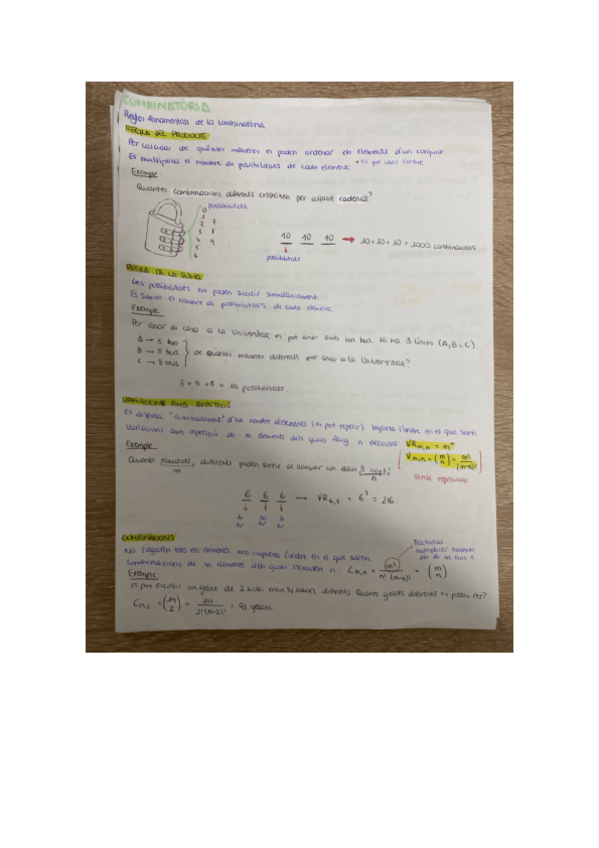 COMBINATÒRIA
Regles fonamentals de la combinatòria
REGLA DEL PRODUCTE
Per calcular de quantes maneres es poden ordenar els elements d'un conjunt.
Es multiplica el nombre de possibilitats de cada element
Exemple:
Quantes combinacions diferents existeixen per aquest cadenat?
possibilitats
0
1
2 7
3 8
4 9
5
6
10 10 10 → 10 · 10 · 10 = 1000 combinacions
possibilitats
REGLA DE LA SUMA
Les possibilitats no poden succeir simultàniament.
Es sumen el nombre de possibilitats de cada element.
Exemple:
Per anar de casa a la Universitat es pot anar amb un bus. Hi ha 3 línies (A, B i C).
A → bus
B → 5 bus
C → 8 bus
de quantes maneres diferents pot anar a la Universitat?
possibilitats.
VARIACIONS AMB REPETICIÓ
Es disposa "il·limitadament" d'un nombre d'elements (es pot repetir). Importa l'ordre en el que surti
Variacions amb repetició de m elements dels quals n VR m,n = mⁿ
Exemple: V m,n = m! / (m-n)!
Quants resultats diferents poden sortir al llançar un dau 3 cops?
m n
sense repeticions
6 6 6 → VR = 6³ = 216
COMBINACIONS
No s'agafen tots els elements. No importa l'ordre en el que surtin
Combinacions de m elements dels quals s'escullen n: C m,n = m! / n! (m-n)! = (m n)
factorial
multiplicar nombres
des de m fins 1
Exemple:
Es pot escollir un gelat de 2 boles entre 14 sabors diferents. Quants gelats diferents es poden fer?
= (14 2) = = 91 gelats.